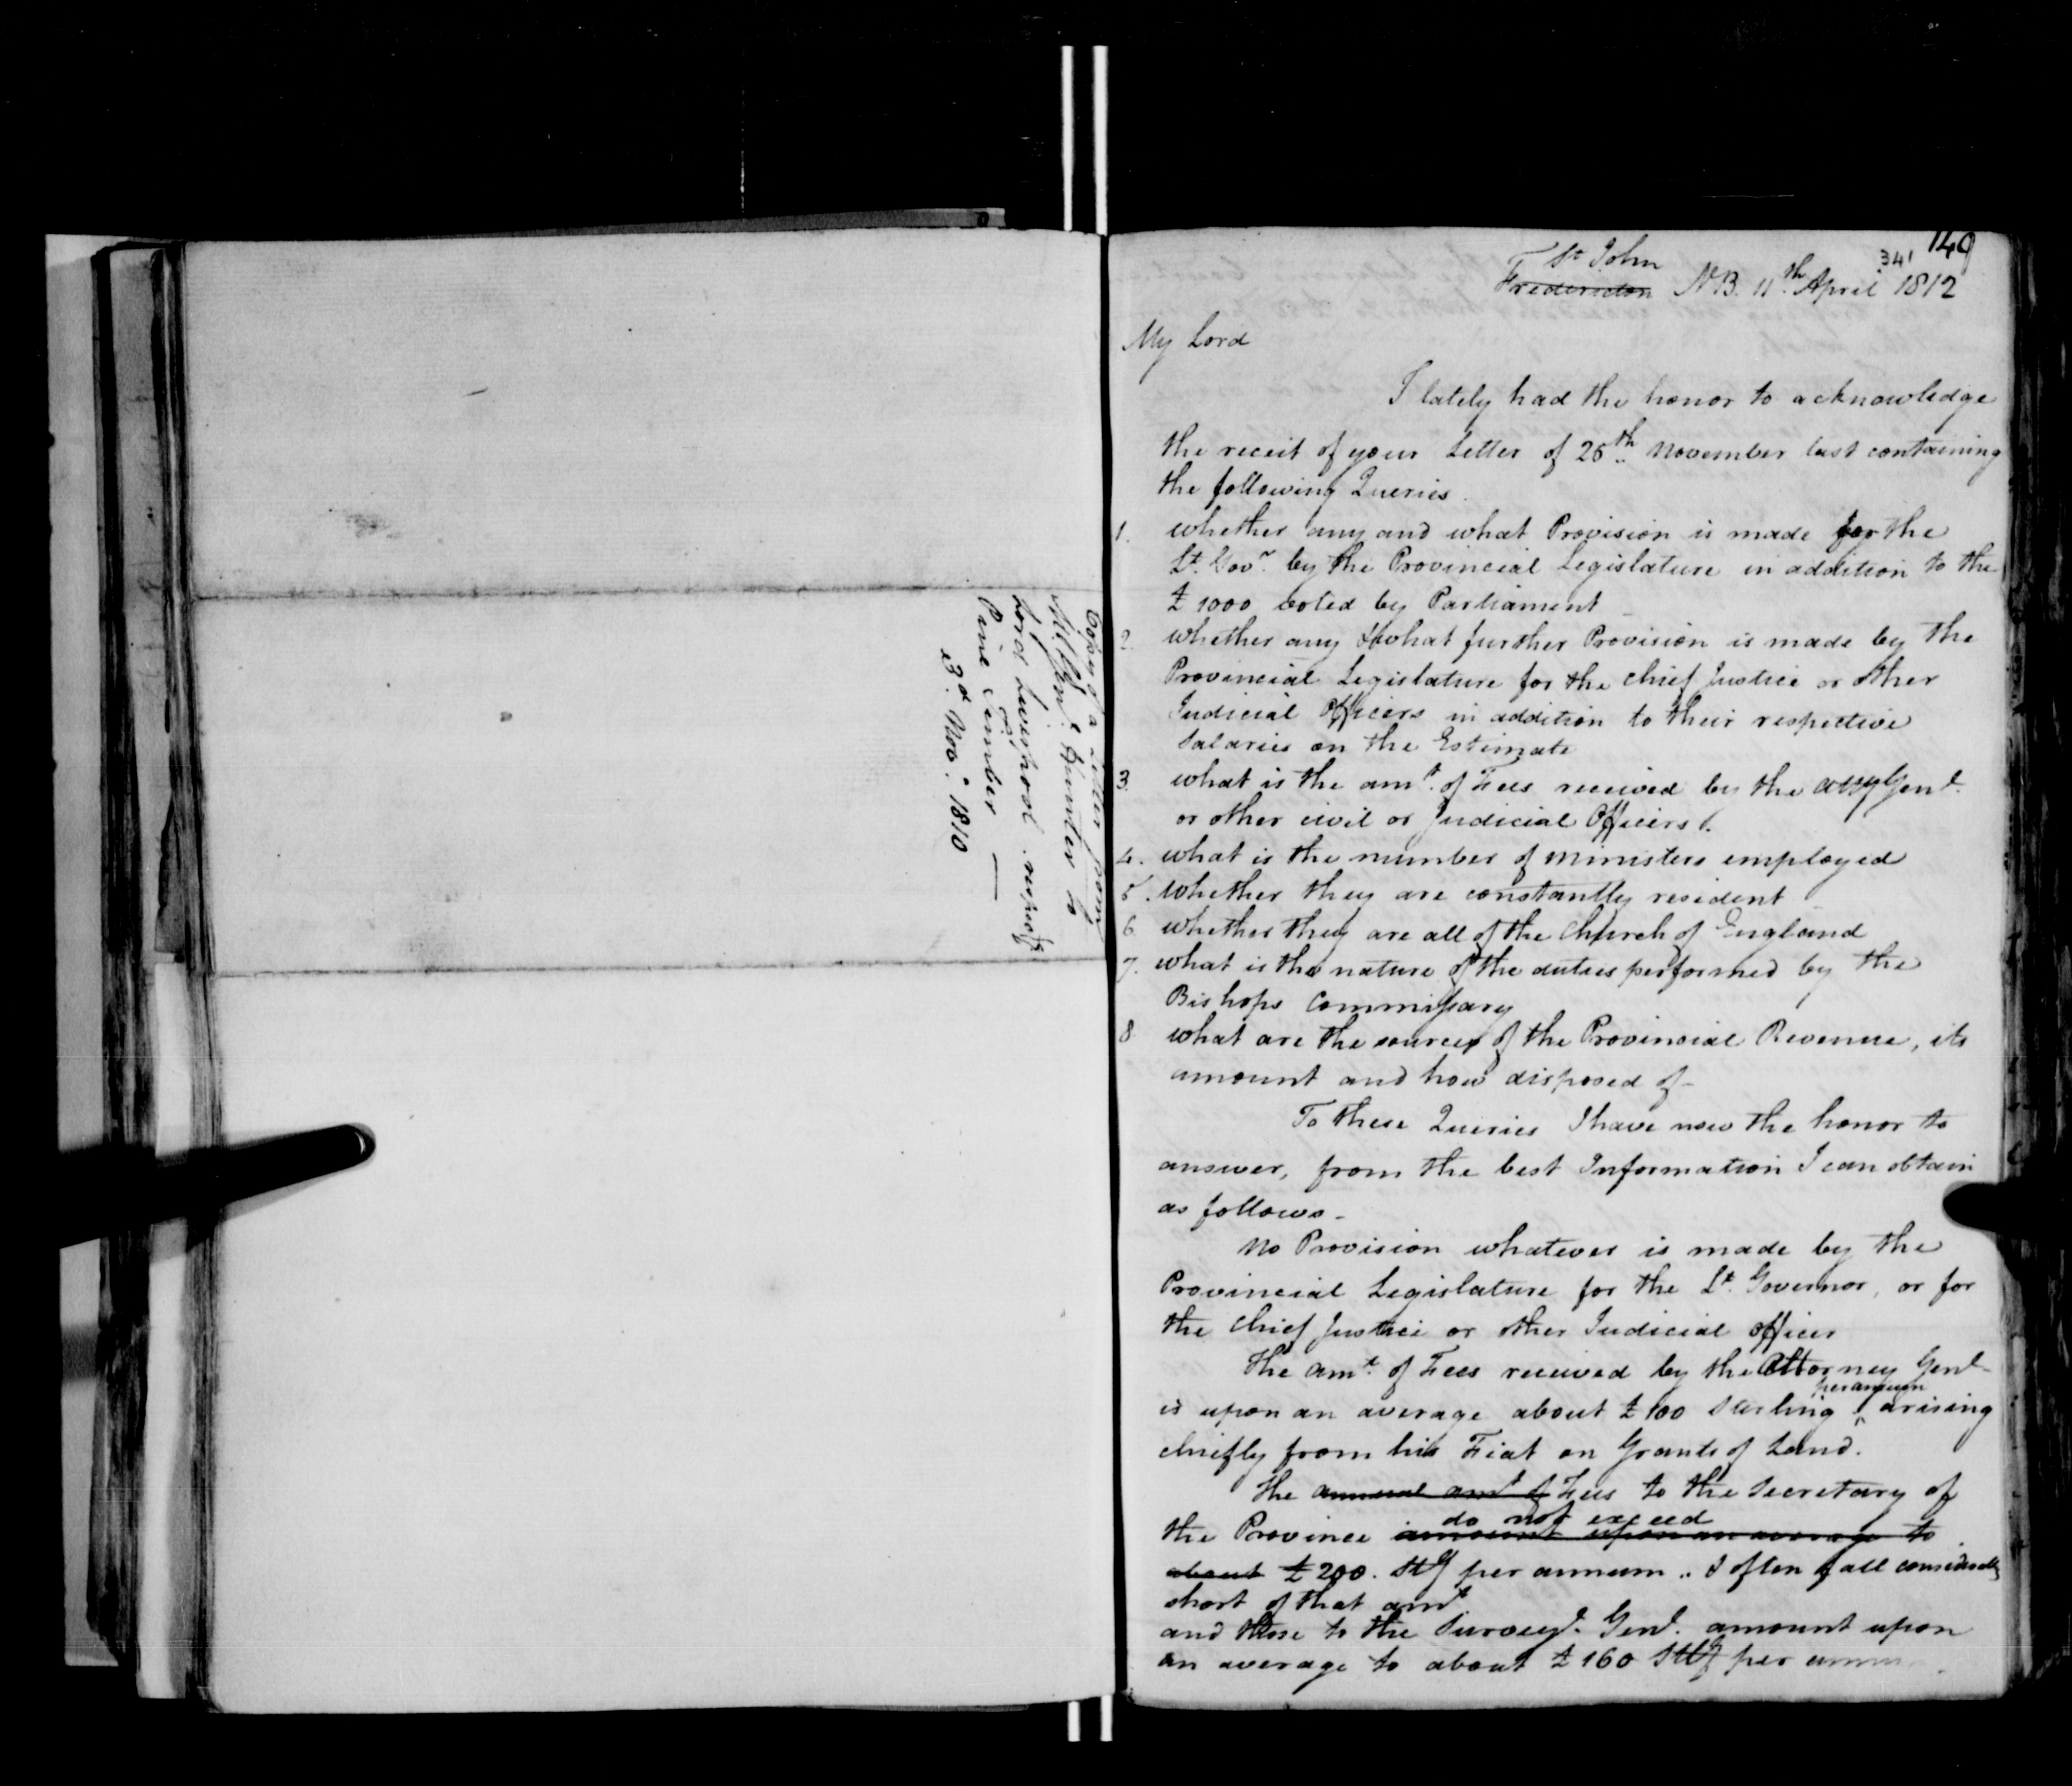 Copy of a Letter from
M. Genl. Hunter to
Lord Liverpool respectg
Pine Timber
23d. Novr. 1810
149
341
St John
Fredericton NB. 11th. April 1812
My Lord
I lately had the honor to acknowledge
the receit of your Letter of 26th. November last containing
the following Queries.
1. whether any and what Provision is made for the
Lt. Govr. by the Provincial Legislature in addition to the
£1000 voted by Parliament
2. whether any & what further Provision is made by the
Provincial Legislature for the chief Justice or other
Judicial Officers in addition to their respective
Salaries on the Estimate
3. what is the amt. of Fees received by the atty Genl.
or other civil or Judicial Officers.
4. what is the number of ministers employed
5. whether they are constantly resident
6 whether they are all of the Church of England
7. what is the nature of the duties performed by the
Bishops Commissary
8 what are the sources of the Provincial Revenue, its
amount and how disposed of-
To these Queries I have now the honor to
answer, from the best Information I can obtain
as follows-
No Provision whatever is made by the
Provincial Legislature for the Lt. Governor, or for
the chief Justice or other Judicial officer
The amt. of Fees received by the Attorney Genl
per annum
is upon an average about £100 Sterling ^ arising
chiefly from his Fiat on Grants of Land.
The annual amt of Fees to the Secretary of
do not exceed
the Province amount upon an average to
about £200. Stg per annum.. & often fall considerably
short of that amt
and those to the Surveyr. Genl. amount upon
an average to about £160 Stlg per annum